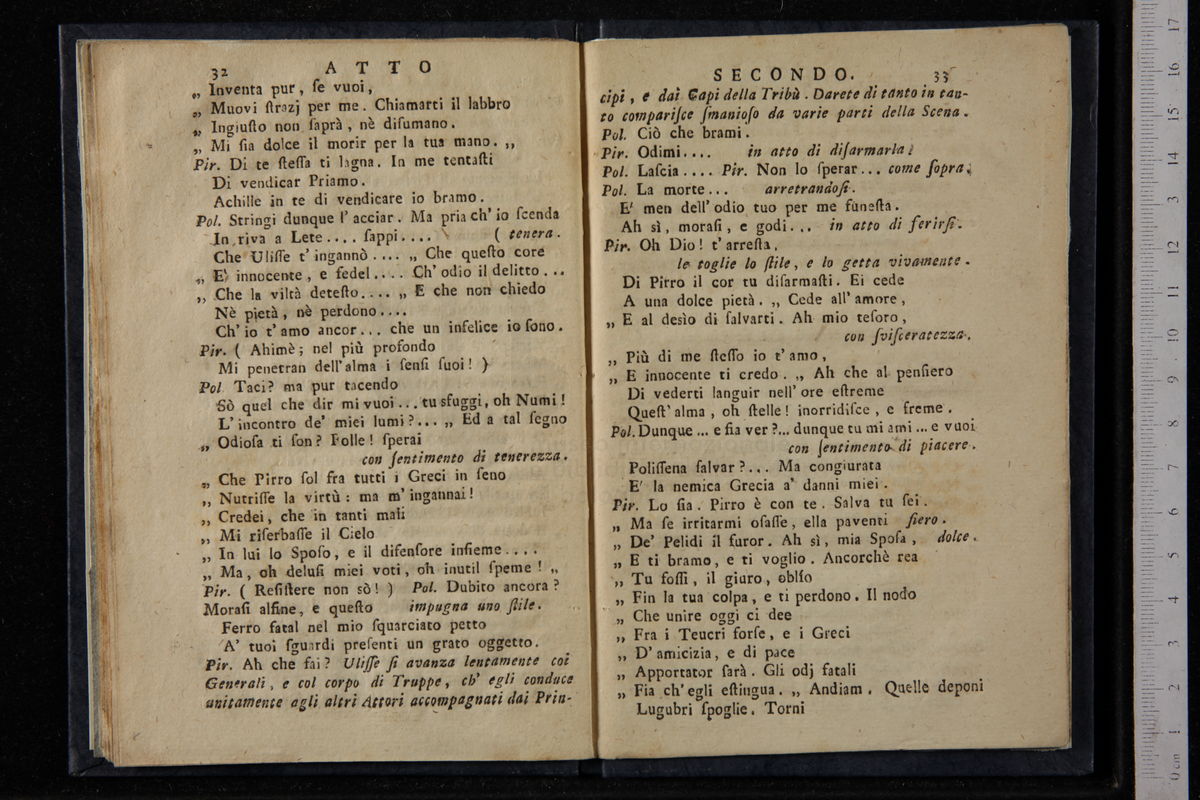 32 ATTO
„ Inventa pur, ſe vuoi,
„ Muovi ſtrazj per me. Chiamarti il labbro
„ Ingiuſto non ſaprà, nè diſumano.
„ Mi ſia dolce il morir per la tua mano. „
Pir. Di te ſteſſa ti lagna. In me tentaſti
Di vendicar Priamo.
Achille in te di vendicare io bramo.
Pol. Stringi dunque l'acciar. Ma pria ch'io ſcenda
In riva a Lete.... ſappi.... ( tenera.
Che Uliſſe t'ingannò.... „ Che queſto core
„ E' innocente, e fedel.... Ch'odio il delitto...
„ Che la viltà deteſto.... „ E che non chiedo
Nè pietà, nè perdono....
Ch'io t'amo ancor... che un infelice io ſono.
Pir. ( Ahimè; nel più profondo
Mi penetran dell'alma i ſenſi ſuoi! )
Pol. Taci? ma pur tacendo
Sò quel che dir mi vuoi... tu sfuggi, oh Numi!
L'incontro de' miei lumi?... „ Ed a tal ſegno
„ Odioſa ti ſon? Folle! ſperai
con ſentimento di tenerezza.
„ Che Pirro ſol fra tutti i Greci in ſeno
„ Nutriſſe la virtù: ma m'ingannai!
„ Credei, che in tanti mali
„ Mi riſerbaſſe il Cielo
„ In lui lo Spoſo, e il difenſore inſieme....
„ Ma, oh deluſi miei voti, oh inutil ſpeme! „
Pir. ( Reſiſtere non sò! ) Pol. Dubito ancora?
Moraſi alfine, e queſto impugna uno ſtile.
Ferro fatal nel mio ſquarciato petto
A' tuoi ſguardi preſenti un grato oggetto.
Pir. Ah che fai? Uliſſe ſi avanza lentamente coi
Generali, e col corpo di Truppe, ch'egli conduce
unitamente agli altri Attori accompagnati dai Prin-
SECONDO. 33
cipi, e dai Capi della Tribù. Darete di tanto in tan-
to compariſce ſmanioſo da varie parti della Scena.
Pol. Ciò che brami.
Pir. Odimi.... in atto di diſarmarla.
Pol. Laſcia.... Pir. Non lo ſperar... come ſopra.
Pol. La morte... arretrandoſi.
E' men dell'odio tuo per me funeſta.
Ah sì, moraſi, e godi... in atto di ferirſi.
Pir. Oh Dio! t'arreſta.
le toglie lo ſtile, e lo getta vivamente.
Di Pirro il cor tu diſarmaſti. Ei cede
A una dolce pietà. „ Cede all'amore,
„ E al desìo di ſalvarti. Ah mio teſoro,
con ſviſceratezza.
„ Più di me ſteſſo io t'amo,
„ E innocente ti credo. „ Ah che al penſiero
Di vederti languir nell'ore eſtreme
Queſt'alma, oh ſtelle! inorridiſce, e freme.
Pol. Dunque... e ſia ver?... dunque tu mi ami... e vuoi
con ſentimento di piacere.
Poliſſena ſalvar?... Ma congiurata
E' la nemica Grecia a' danni miei.
Pir. Lo ſia. Pirro è con te. Salva tu ſei.
„ Ma ſe irritarmi oſaſſe, ella paventi fiero.
„ De' Pelidi il furor. Ah sì, mia Spoſa, dolce.
„ E ti bramo, e ti voglio. Ancorchè rea
„ Tu foſſi, il giuro, oblìo
„ Fin la tua colpa, e ti perdono. Il nodo
„ Che unire oggi ci dee
„ Fra i Teucri forſe, e i Greci
„ D'amicizia, e di pace
„ Apportator ſarà. Gli odj fatali
„ Fia ch'egli eſtingua. „ Andiam. Quelle deponi
Lugubri ſpoglie. Torni
0 cm 1 2 3 4 5 6 7 8 9 10 11 12 13 14 15 16 17